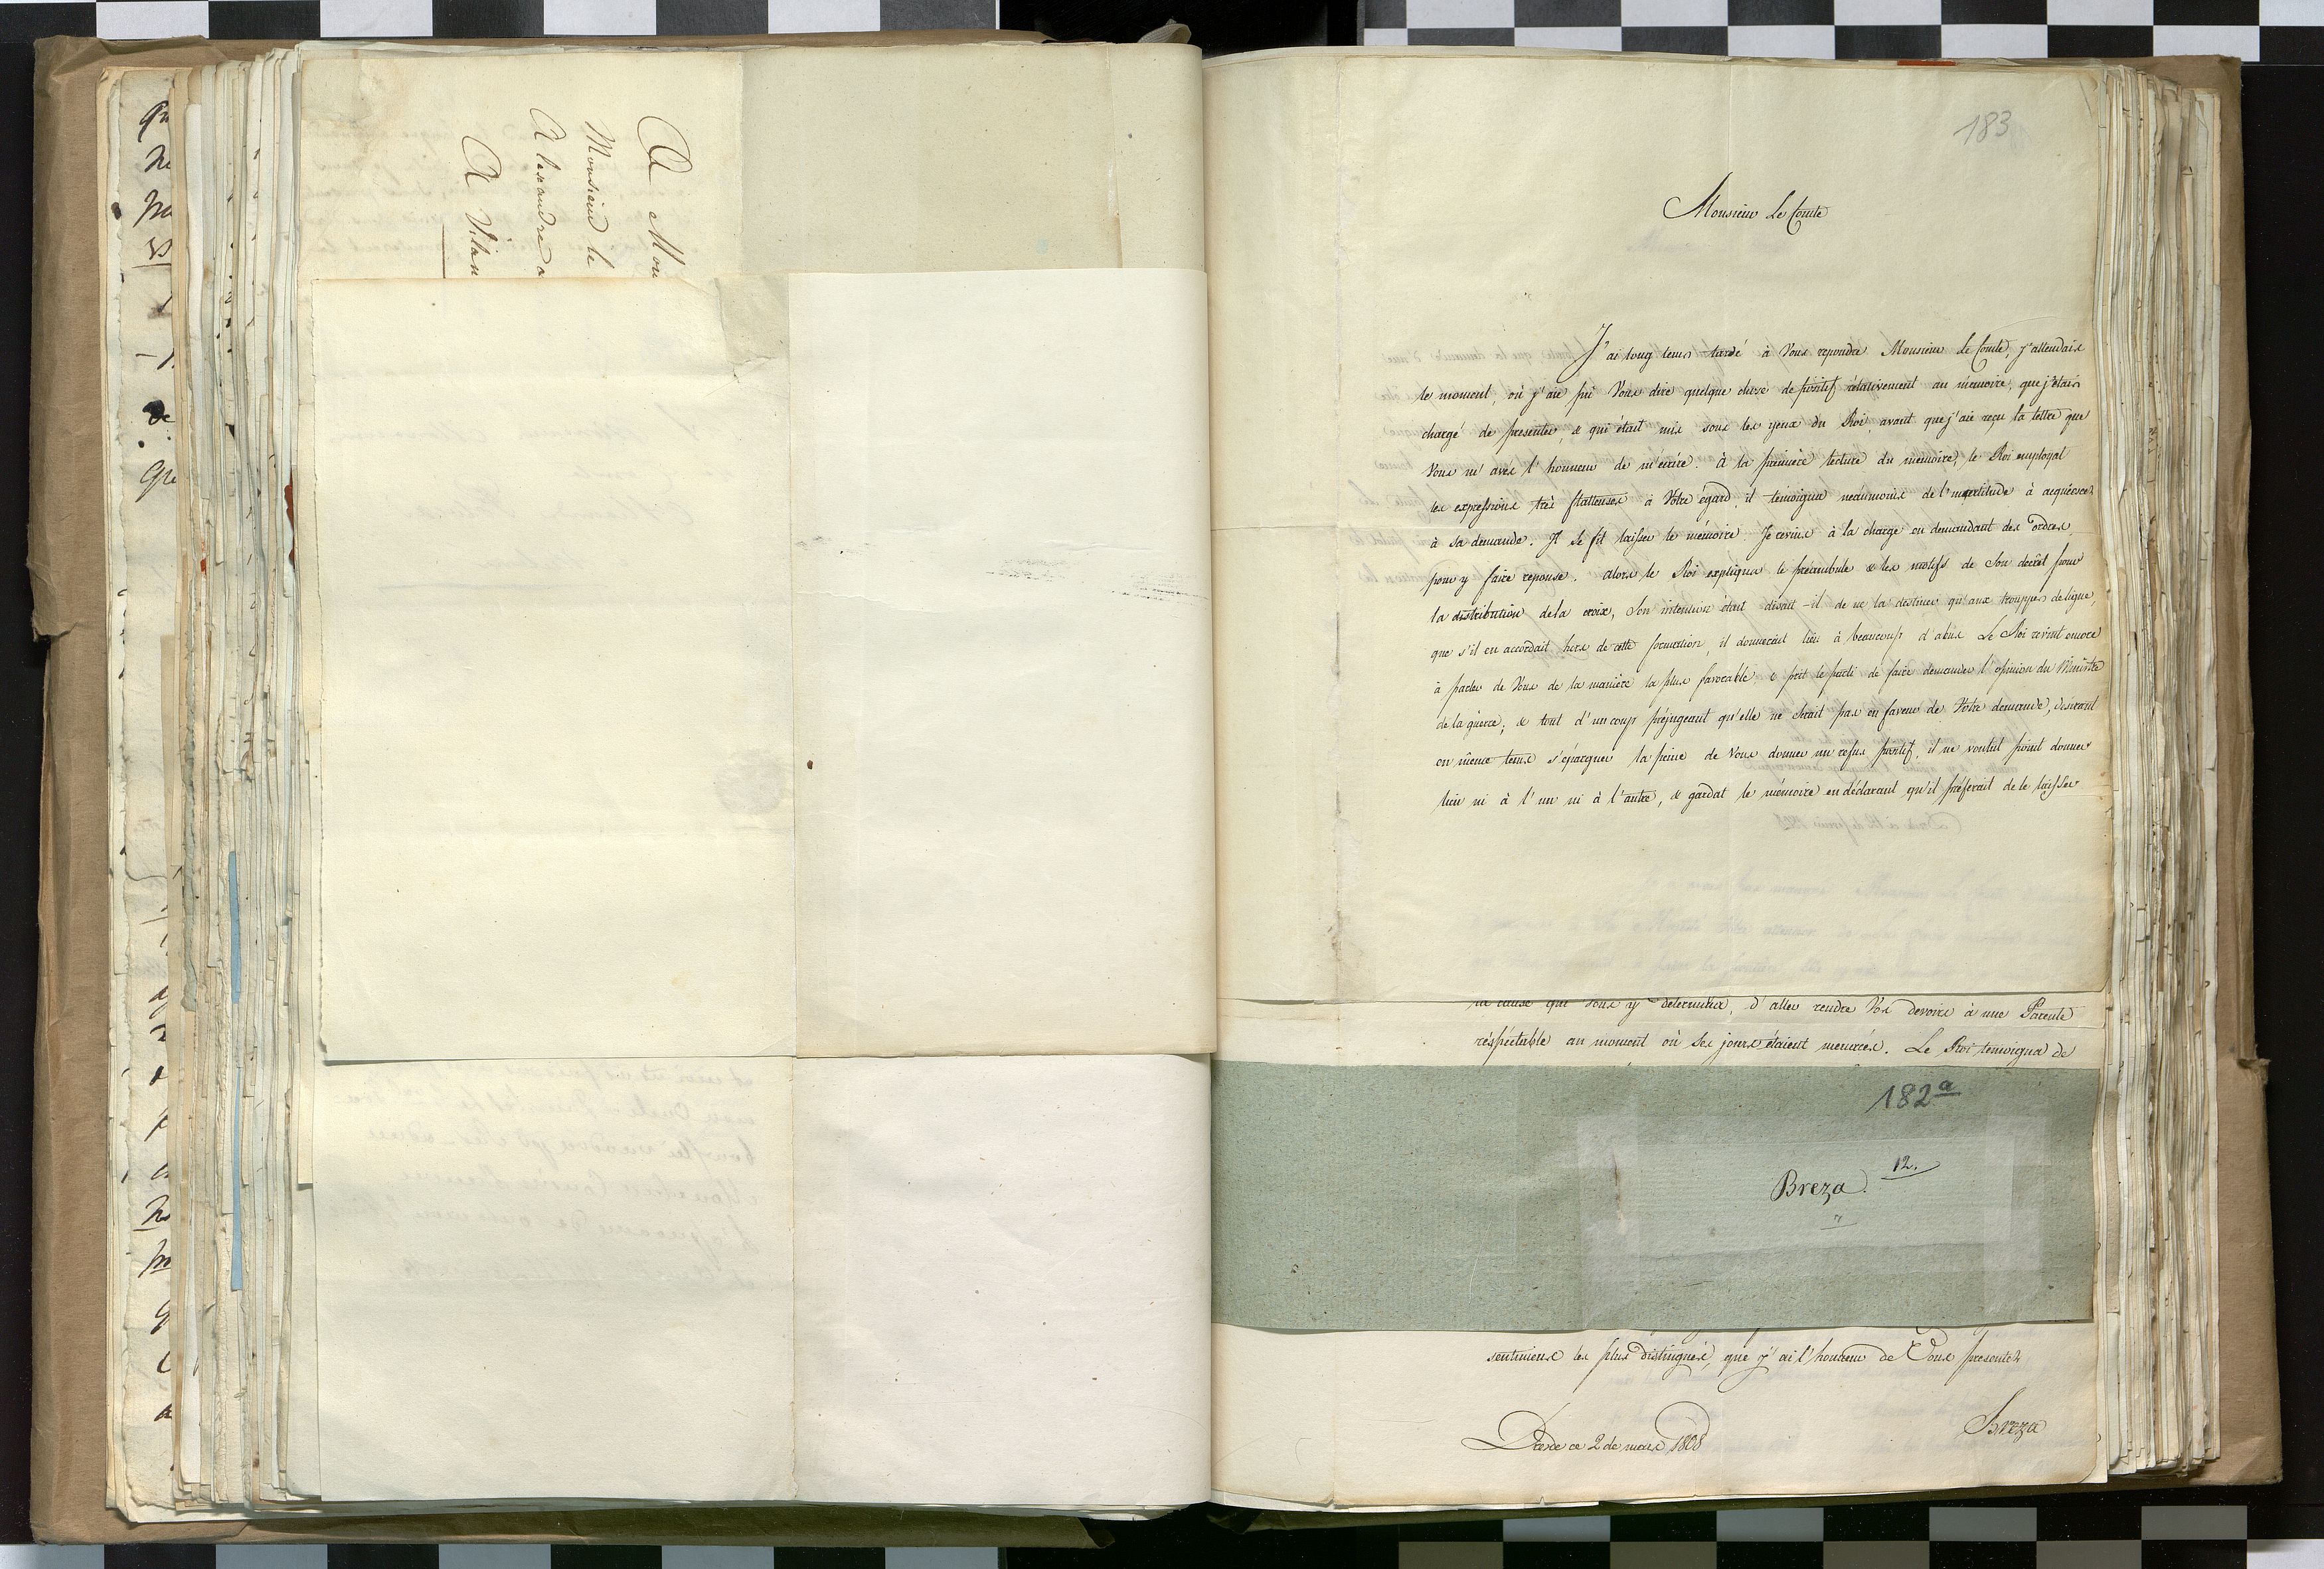 A Mon
Monsieur le
Alexandre
A Vilan
183
Monsieur Le Comte
J'ai long tems tardé à Vous repondre Monsieur Le Comte, j'attendais
le moment, où j'aie pu Vous dire quelque chose de positif rélativement au mémoire, que j'étais
chargé de presenter, & qui était mis sous les yeux du Roi avant que j'aie reçu la lettre que
Vous m'avez l'honneur de m'écrire. à la première lecture du memoire, le Roi employat
les expressions très flatteuses à Votre égard, il temoigna néaumoins de l'inaptitude à acquiescer
à sa demande. Il se fit laisser le mémoire. Je revins à la charge en demandant des ordres
pour y faire reponse. alors le Roi expliqua le préambule & les motifs de Son decrêt pour
la distribution de la croix, Son intention était disait-il de ne la destiner qu'aux trouppes de ligne,
que s'il en accordait hors de cette formation, il donnerait lieu à beaucoup d'abus. Le Roi revint encore
à parler de Vous de la manière la plus favorable, & prit le parti de faire demander l'opinion du Ministre
de la guerre; & tout d'un coup préjugeant qu'elle ne serait pas en faveur de Votre demande, désirant
en même tems s'épargner la peine de Vous donner un refus positif, il ne voulut point donner
lieu ni à l'un ni à l'autre, & gardat le mémoire en déclarant qu'il préferait de le laisser
la cause que Vous y determina, d'aller rendre Vos devoirs à une Parente
réspéctable au moment où Ses jours étaient menacés. Le Roi temoigna de
182a
12.
Breza.
sentimens les plus distingués, que j'ai l'honneur de Vous presenter
Breza
Dresde ce 2 de mars 1808